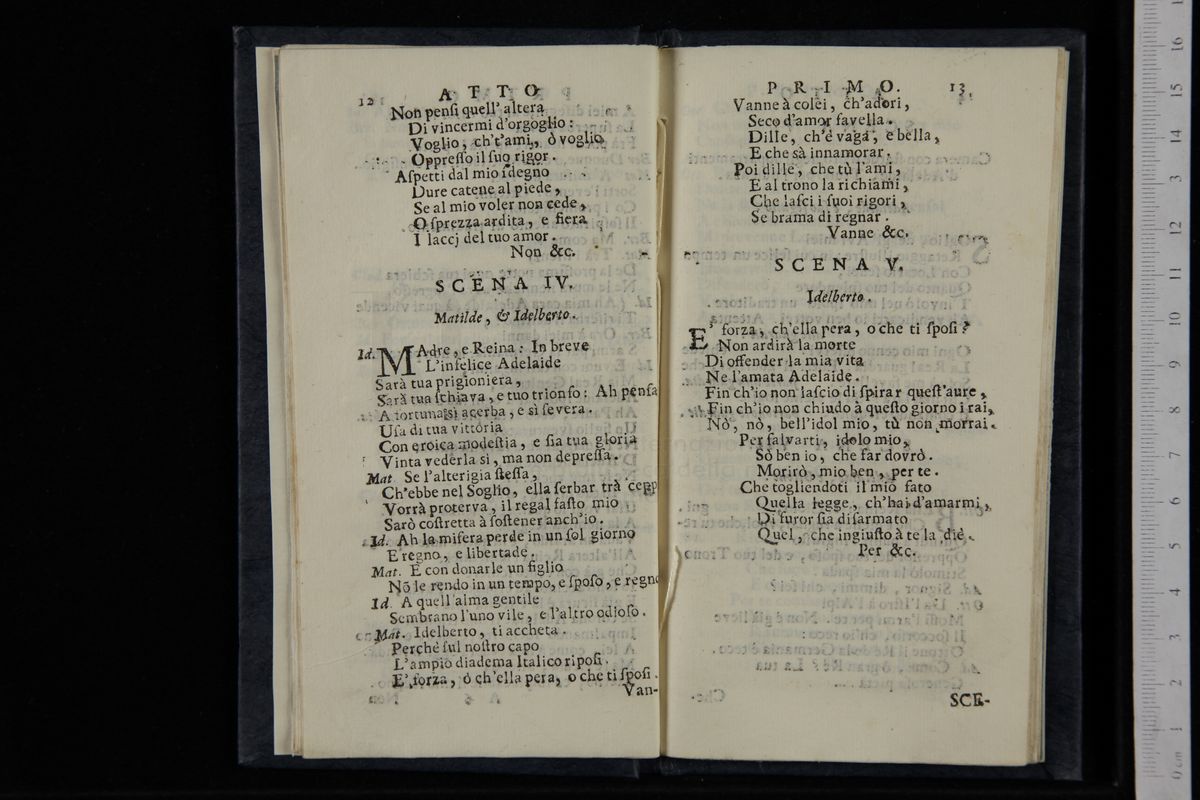 12 ATTO
Non pensi quell' altera
Di vincermi d'orgoglio:
Voglio, ch't'ami, ò voglio
Oppresso il suo rigor.
Aspetti dal mio sdegno
Dure catene al piede,
Se al mio voler non cede,
O sprezza ardita, e fiera
I laccj del tuo amor.
Non &c.
SCENA IV.
Matilde, & Idelberto.
Id. MAdre, e Reina: In breve
L'infelice Adelaide
Sarà tua prigioniera,
Sarà tua schiava, e tuo trionfo: Ah pensa
A fortuna sì acerba, e sì severa.
Usa di tua vittoria
Con eroica modestia, e sia tua gloria
Vinta vederla si, ma non depressa.
Mat Se l'alterigia stessa,
Ch'ebbe nel Soglio, ella serbar trà cepp
Vorrà proterva, il regal fasto mio
Sarò costretta à sostener anch'io.
Id. Ah la misera perde in un sol giorno
E regno, e libertade.
Mat. E con donarle un figlio
Nō le rendo in un tempo, e sposo, e regno
Id A quell'alma gentile
Sembrano l'uno vile, e l'altro odioso.
Mat. Idelberto, ti accheta.
Perchè sul nostro capo
L'ampio diadema Italico riposi.
E' forza, ò ch'ella pera, o che ti sposi.
Van-
PRIMO. 13
Vanne à colei, ch'adori,
Seco d'amor favella.
Dille, ch'è vaga, e bella,
E che sà innamorar.
Poi dille, che tù l'ami,
E al trono la richiami,
Che lasci i suoi rigori,
Se brama di regnar.
Vanne &c.
SCENA V.
Idelberto.
E' forza, ch'ella pera, o che ti sposi?
Non ardirà la morte
Di offender la mia vita
Ne l'amata Adelaide.
Fin ch'io non lascio di spirar quest'aure,
Fin ch'io non chiudo à questo giorno i rai,
Nò, nò, bell'idol mio, tù non morrai.
Per salvarti, idolo mio,
Sò ben io, che far dovrò.
Morirò, mio ben, per te.
Che togliendoti il mio fato
Quella legge, ch'hai d'amarmi,
Di furor sia disarmato
Quel, che ingiusto à te la diè.
Per &c.
SCE-